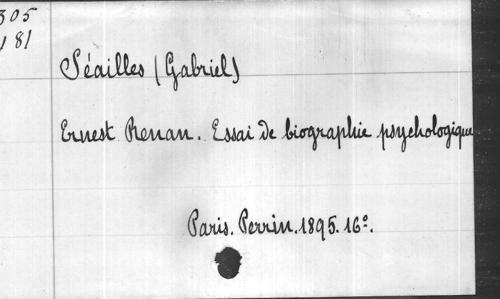 305
181
Séailles (Gabriel)
Ernest Renan. Essai de biographie psychologique
Paris. Perrin. 1895. 16º.